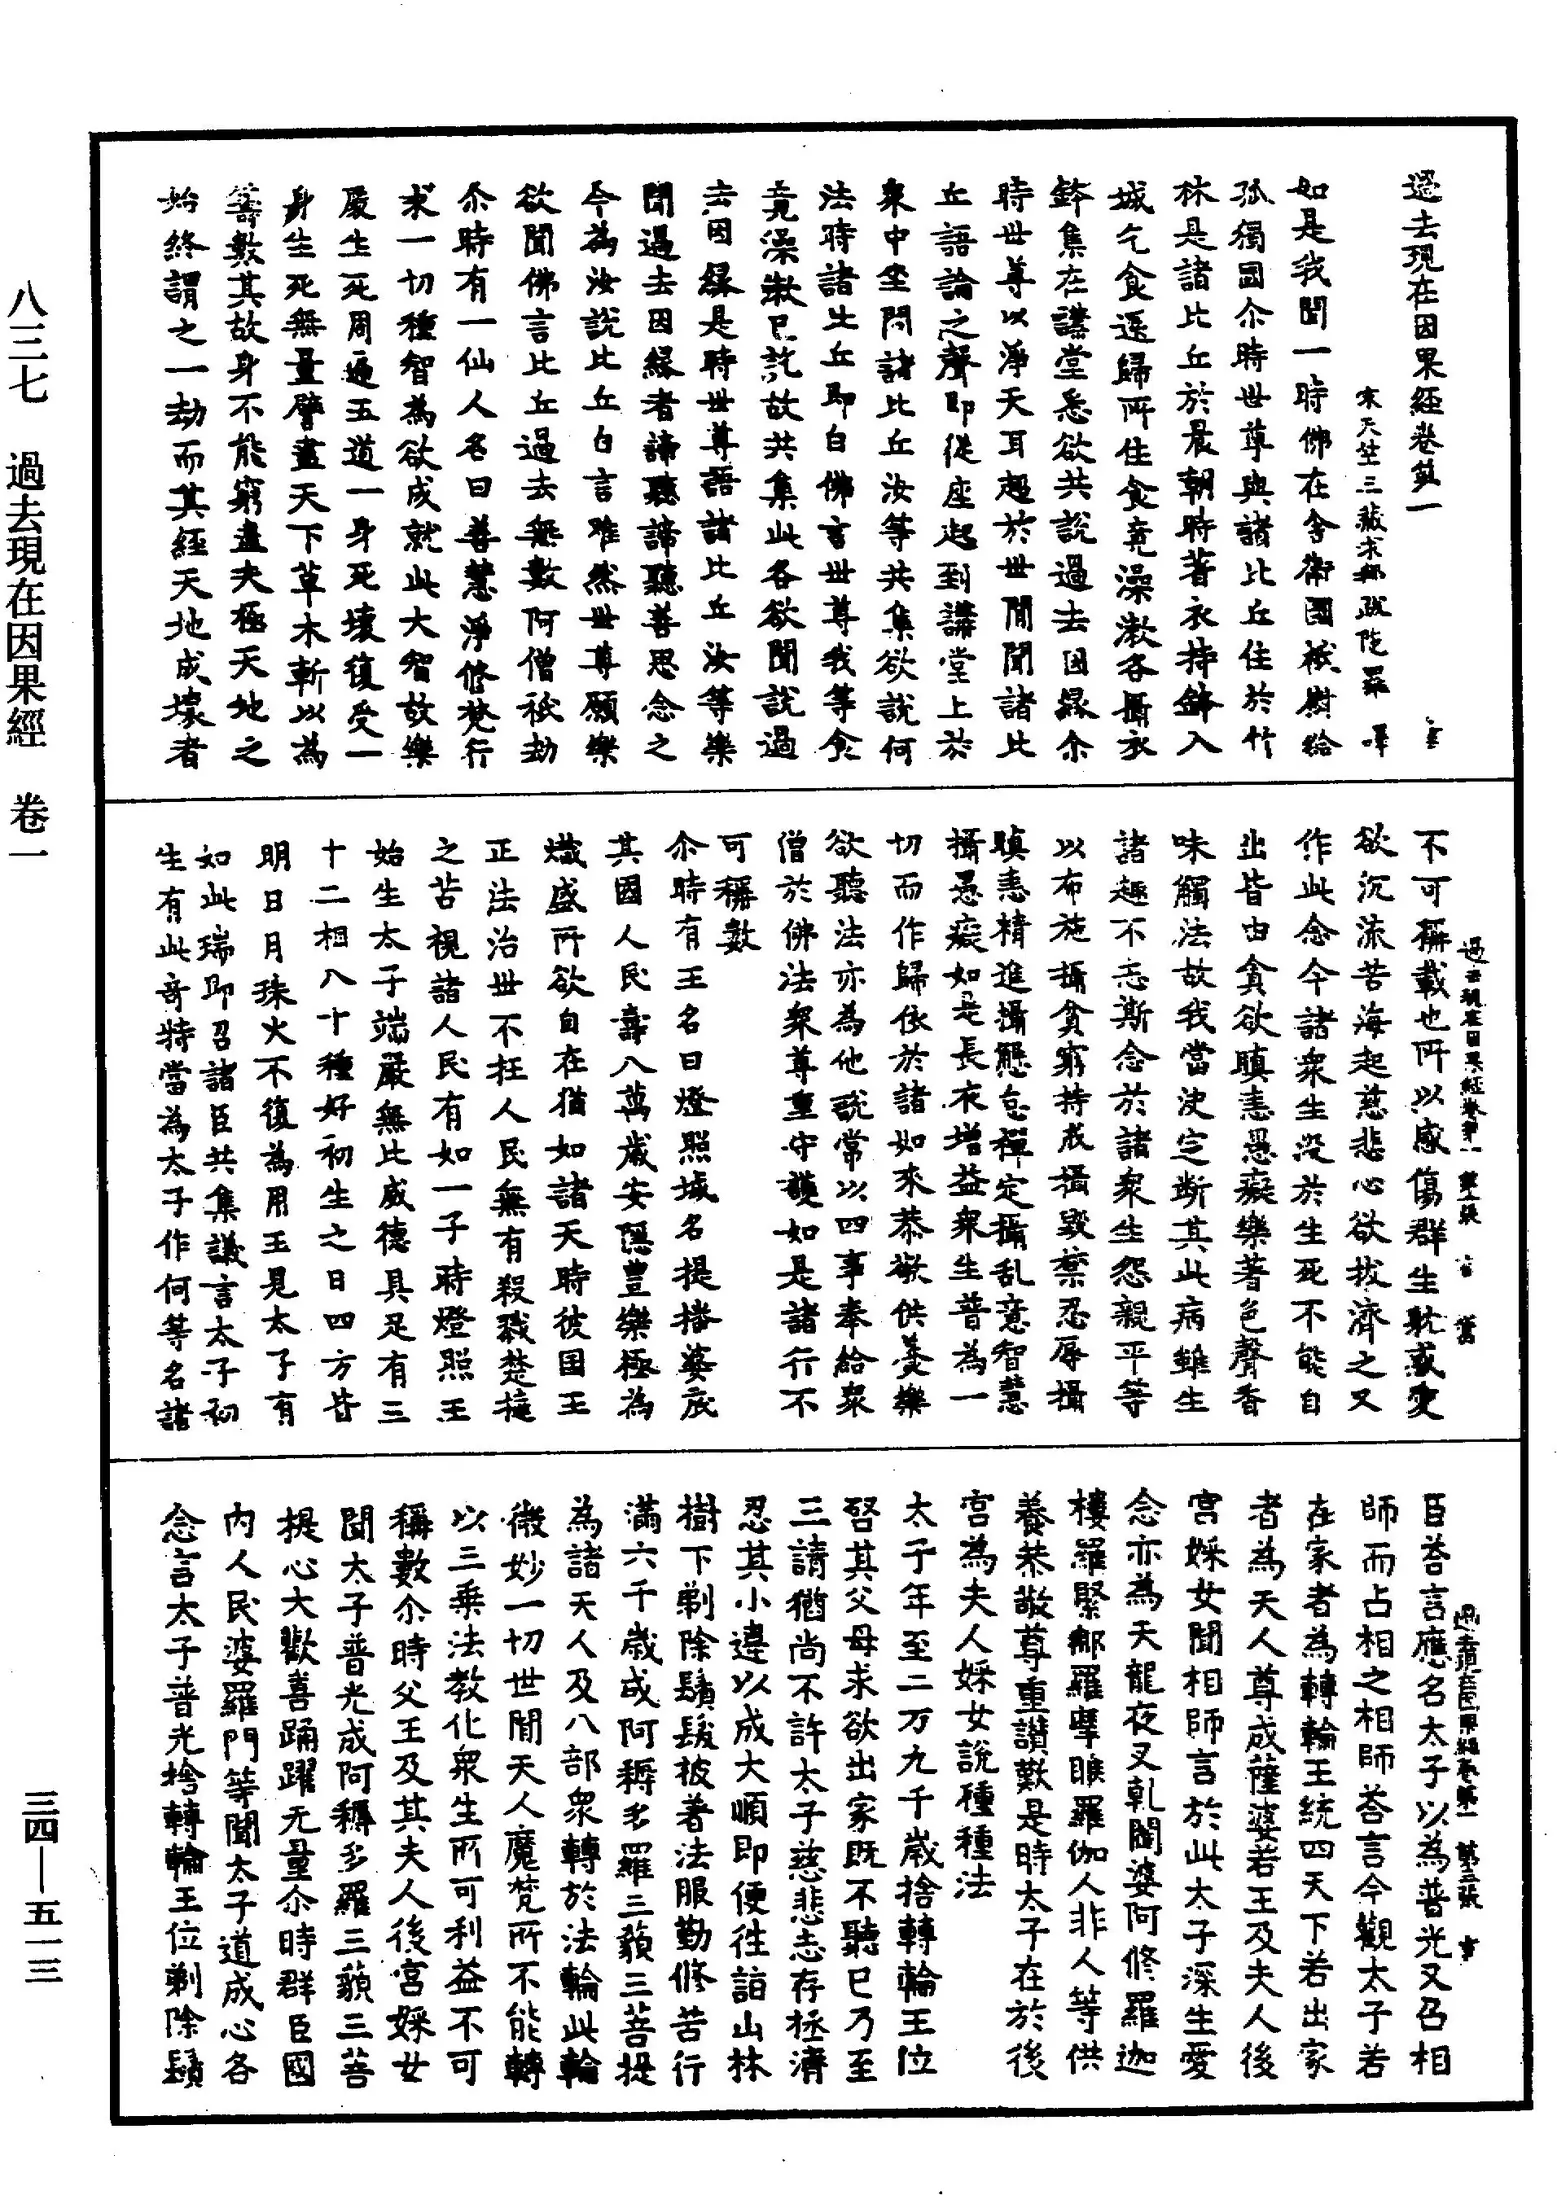 過去現在因果經卷第一
宋天竺三藏求那跋陀羅　譯
如是我聞一時佛在舍衛國祇樹給
孤獨園尒時世尊與諸比丘住於竹
林是諸比丘於晨朝時著衣持鉢入
城乞食還歸所住食竟澡漱各攝衣
鉢集在講堂悉欲共說過去因緣尒
時世尊以淨天耳超於世間聞諸比
丘語論之聲即從座起到講堂上於
衆中坐問諸比丘汝等共集欲說何
法時諸比丘即白佛言世尊我等食
竟澡漱已訖故共集此各欲聞說過
去因緣是時世尊語諸比丘汝等樂
聞過去因緣者諦聽諦聽善思念之
今為汝說比丘白言唯然世尊願樂
欲聞佛言比丘過去無數阿僧祇劫
尒時有一仙人名曰善慧淨修梵行
求一切種智為欲成就此大智故樂
處生死周遍五道一身死壞復受一
身生死無量譬盡天下草木斬以為
籌數其故身不能窮盡夫極天地之
始終謂之一劫而其經天地成壞者
過去現在因果經卷第一　第二張
不可稱載也所以感傷群生耽惑愛
欲沉流苦海起慈悲心欲拔濟之又
作此念今諸衆生沒於生死不能自
出皆由貪欲瞋恚愚癡樂著色聲香
味觸法故我當決定斷其此病雖生
諸趣不忘斯念於諸衆生怨親平等
以布施攝貧窮持戒攝毀禁忍辱攝
瞋恚精進攝懈怠禪定攝乱意智慧
攝愚癡如是長夜增益衆生普為一
切而作歸依於諸如來恭敬供養樂
欲聽法亦為他說常以四事奉給衆
僧於佛法衆尊重守護如是諸行不
可稱數
尒時有王名曰燈照城名提播婆底
其國人民壽八萬歲安隱豐樂極為
熾盛所欲自在猶如諸天時彼国王
正法治世不枉人民無有殺戮楚撻
之苦視諸人民有如一子時燈照王
始生太子端嚴無比威德具足有三
十二相八十種好初生之日四方皆
明日月珠火不復為用王見太子有
如此瑞即召諸臣共集議言太子初
生有此奇特當為太子作何等名諸
過去現在因果經卷第一　第三張
臣荅言應名太子以為普光又召相
師而占相之相師荅言今觀太子若
在家者為轉輪王統四天下若出家
者為天人尊成薩婆若王及夫人後
宮婇女聞相師言於此太子深生愛
念亦為天龍夜叉乹闥婆阿修羅迦
樓羅緊那羅摩睺羅伽人非人等供
養恭敬尊重讃歎是時太子在於後
宮為夫人婇女說種種法
太子年至二万九千歲捨轉輪王位
啓其父母求欲出家既不聽已乃至
三請猶尚不許太子慈悲志存拯濟
忍其小違以成大順即便往詣山林
樹下剃除鬚髮披著法服勤修苦行
滿六千歲成阿耨多羅三藐三菩提
為諸天人及八部衆轉於法輪此輪
微妙一切世間天人魔梵所不能轉
以三乘法教化衆生所可利益不可
稱數尒時父王及其夫人後宮婇女
聞太子普光成阿耨多羅三藐三菩
提心大歡喜踊躍无量尒時群臣國
內人民婆羅門等聞太子道成心各
念言太子普光捨轉輪王位剃除鬚
八三七　過去現在因果經　卷一
三四—五一三